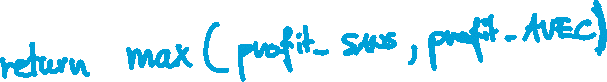 return max(profit_SANS, profit_AVEC)